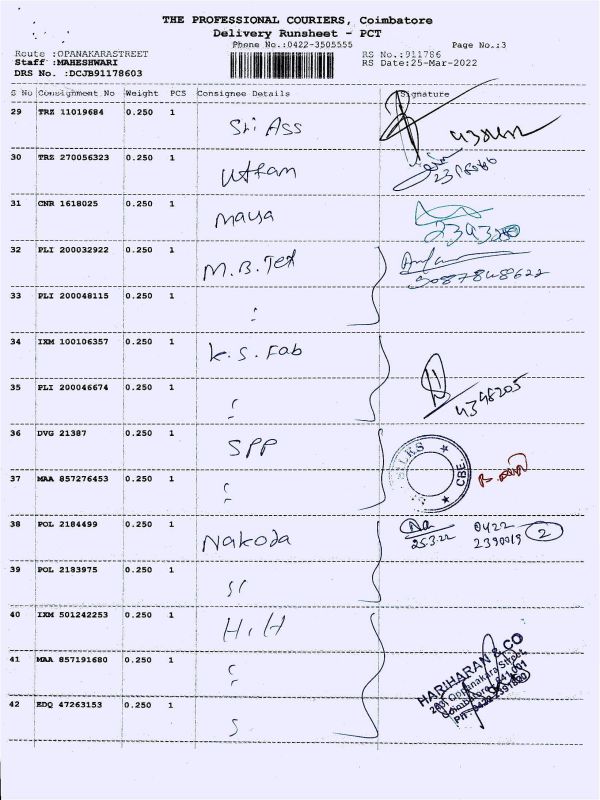 THE PROFESSIONAL COURIERS, Coimbatore
Delivery Runsheet - PCT
Phone No.:0422-3505555 Page No.:3
Route :OPANAKARASTREET RS No.:911786
Staff :MAHESHWARI RS Date:25-Mar-2022
DRS No. :DCJB91178603
S No Consignment No Weight PCS Consignee Details Signature
29 TRZ 11019684 0.250 1 Sri Ass
30 TRZ 270056323 0.250 1 Uttam
31 CNR 1618025 0.250 1 Maya
32 PLI 200032922 0.250 1 M.B.Tex
33 PLI 200048115 0.250 1
34 IXM 100106357 0.250 1 K.S. Fab
35 PLI 200046674 0.250 1
4398205
36 DVG 21387 0.250 1 SPP
SILKS CBE.
37 MAA 857276453 0.250 1
38 POL 2184499 0.250 1 Nakoda
25.3.22 0422 2390019 2
39 POL 2183975 0.250 1
40 IXM 501242253 0.250 1 H.H
41 MAA 857191680 0.250 1
HARIHARAN & CO
Oppanakara Street
Coimbatore - 641 001
42 EDQ 47263153 0.250 1